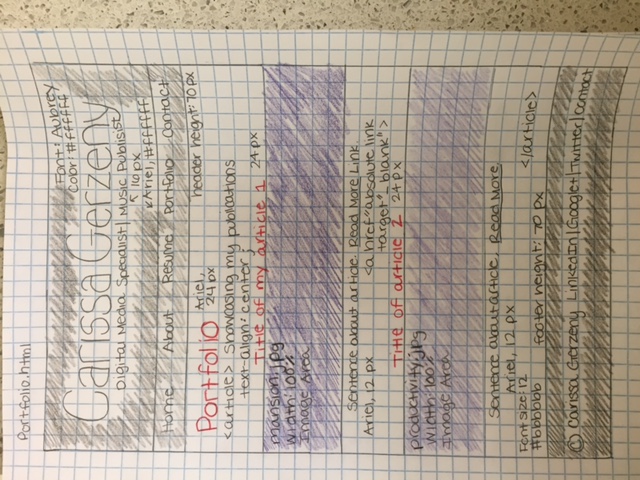 Portfolio.html
Font: Aubrey
Color: #ffffff
Carissa Gerzeny
Digital Media Specialist | Music Publisist
16px
Ariel, #ffffff
Home About Resume Portfolio Contact
header height: 70px
Portfolio Ariel, 24px
<article> Showcasing my publications
text-align: center;
Title of my article 1 24px
mansion.jpg
width: 100%
Image Area
Sentence about article. Read More Link.
Ariel, 12 px <a href="absolute link
target"_blank">
Title of article 2 24px
productivity.jpg
width: 100%
Image Area
Sentence about article. Read More.
Ariel, 12px
Font size: 12 </article>
#bbbbbb footer height: 70 px
© Carissa Gerzeny LinkedIn | Google+ | Twitter | Contact